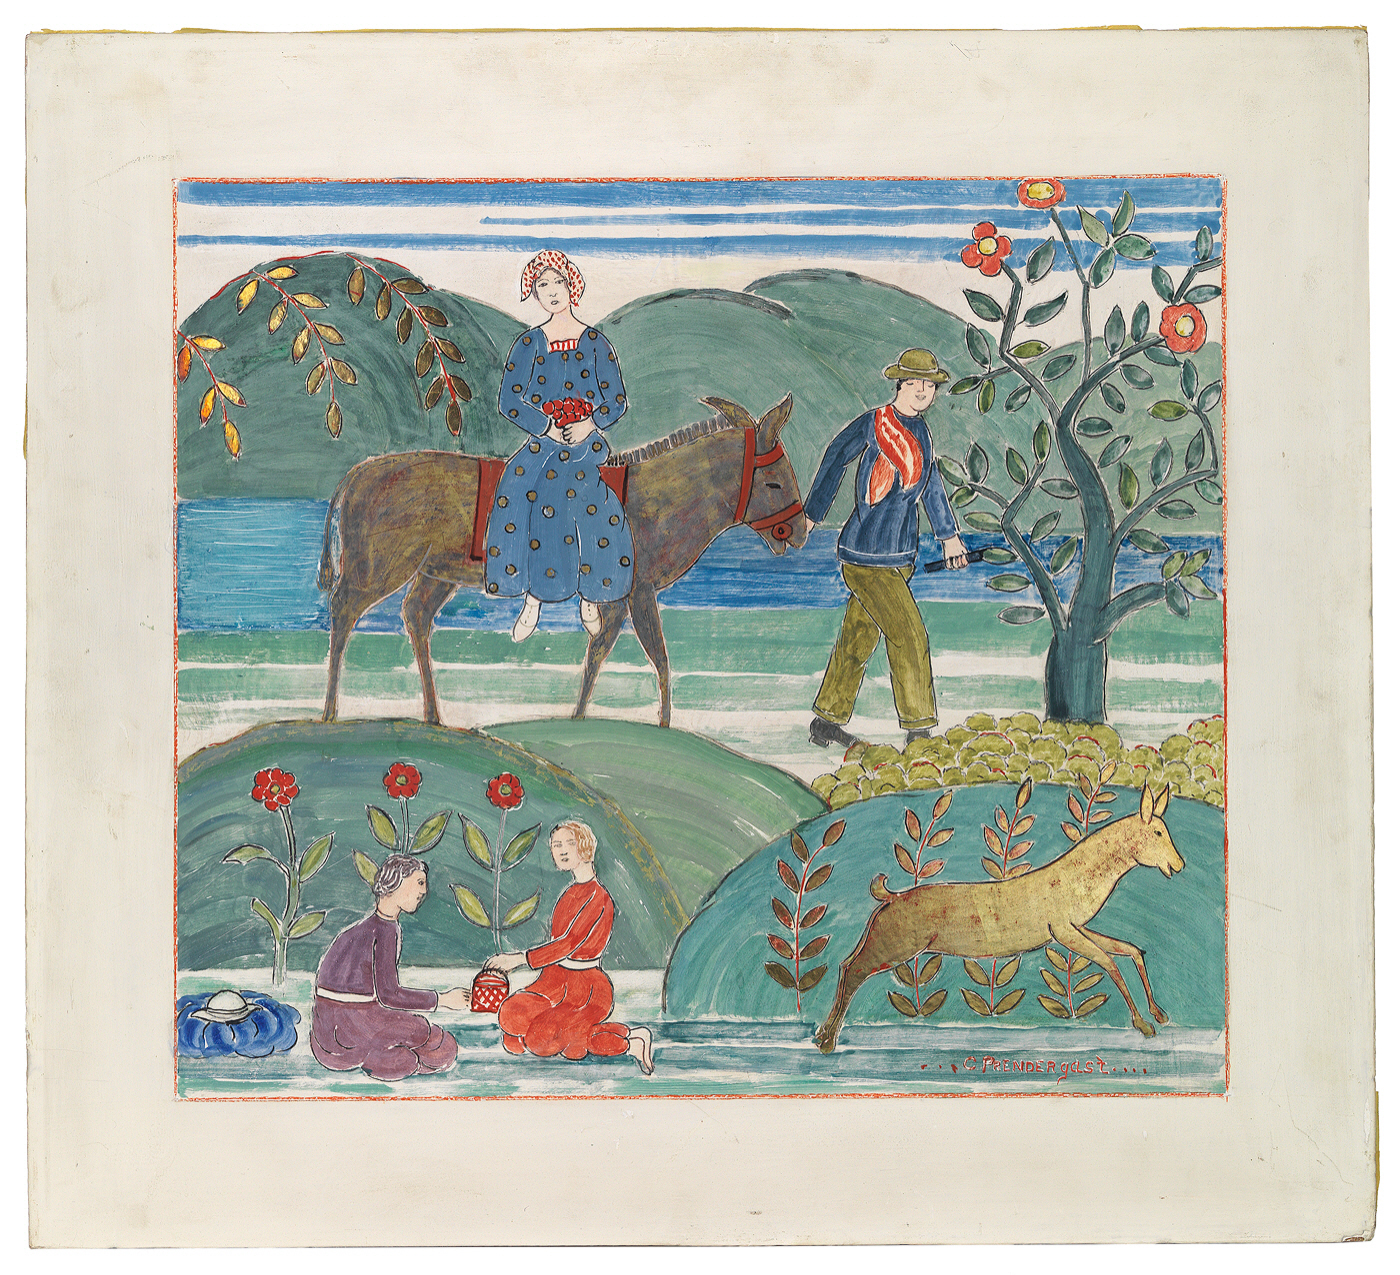 ... C PRENDERgasT....